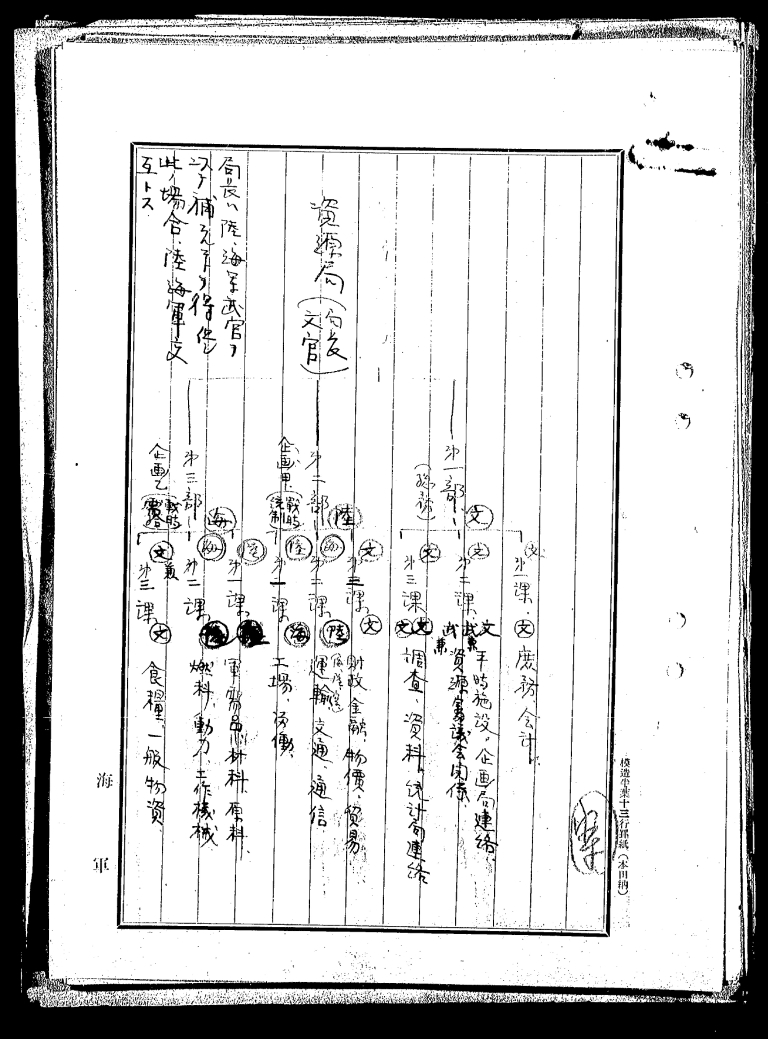 第一課、文 庶務、会計
文
第二課 文 平時施設、企画局連絡、
文 武兼 資源審議会関係
第一部 文
(総務)
第三課 文 調査、資料、統計局連絡
文
資源局(局長 文官)
第三課 文 財政金融、物價、貿易
文
第二課 陸 運輸、交通、通信
海
第二部 陸
企画甲(戦時統制)
第一課 海 工場、労働、
陸
第一課 軍需品、材料、原料、
第二課 燃料、動力、工作機械
海
第三部 海
企画乙(戦時
第三課 文 食糧、一般物資
文兼
局長ハ陸、海軍武官ヲ
以テ補充スルヲ得但
此ノ場合、陸海軍交
互トス
模造半葉十三行罫紙(本田納)
海軍